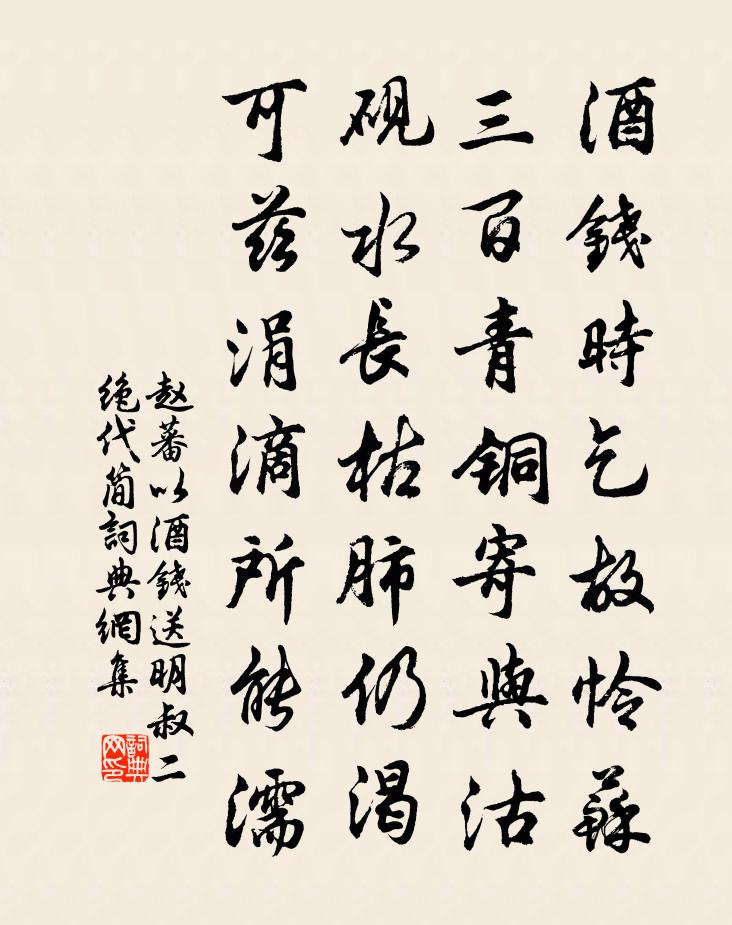 酒錢時乞故怜蘇
三百青銅寄與沽
硯水長枯肺仍渴
可茲涓滴所能濡
赵蕃以酒錢送明叔二
绝代簡詞典網集
詞典网印